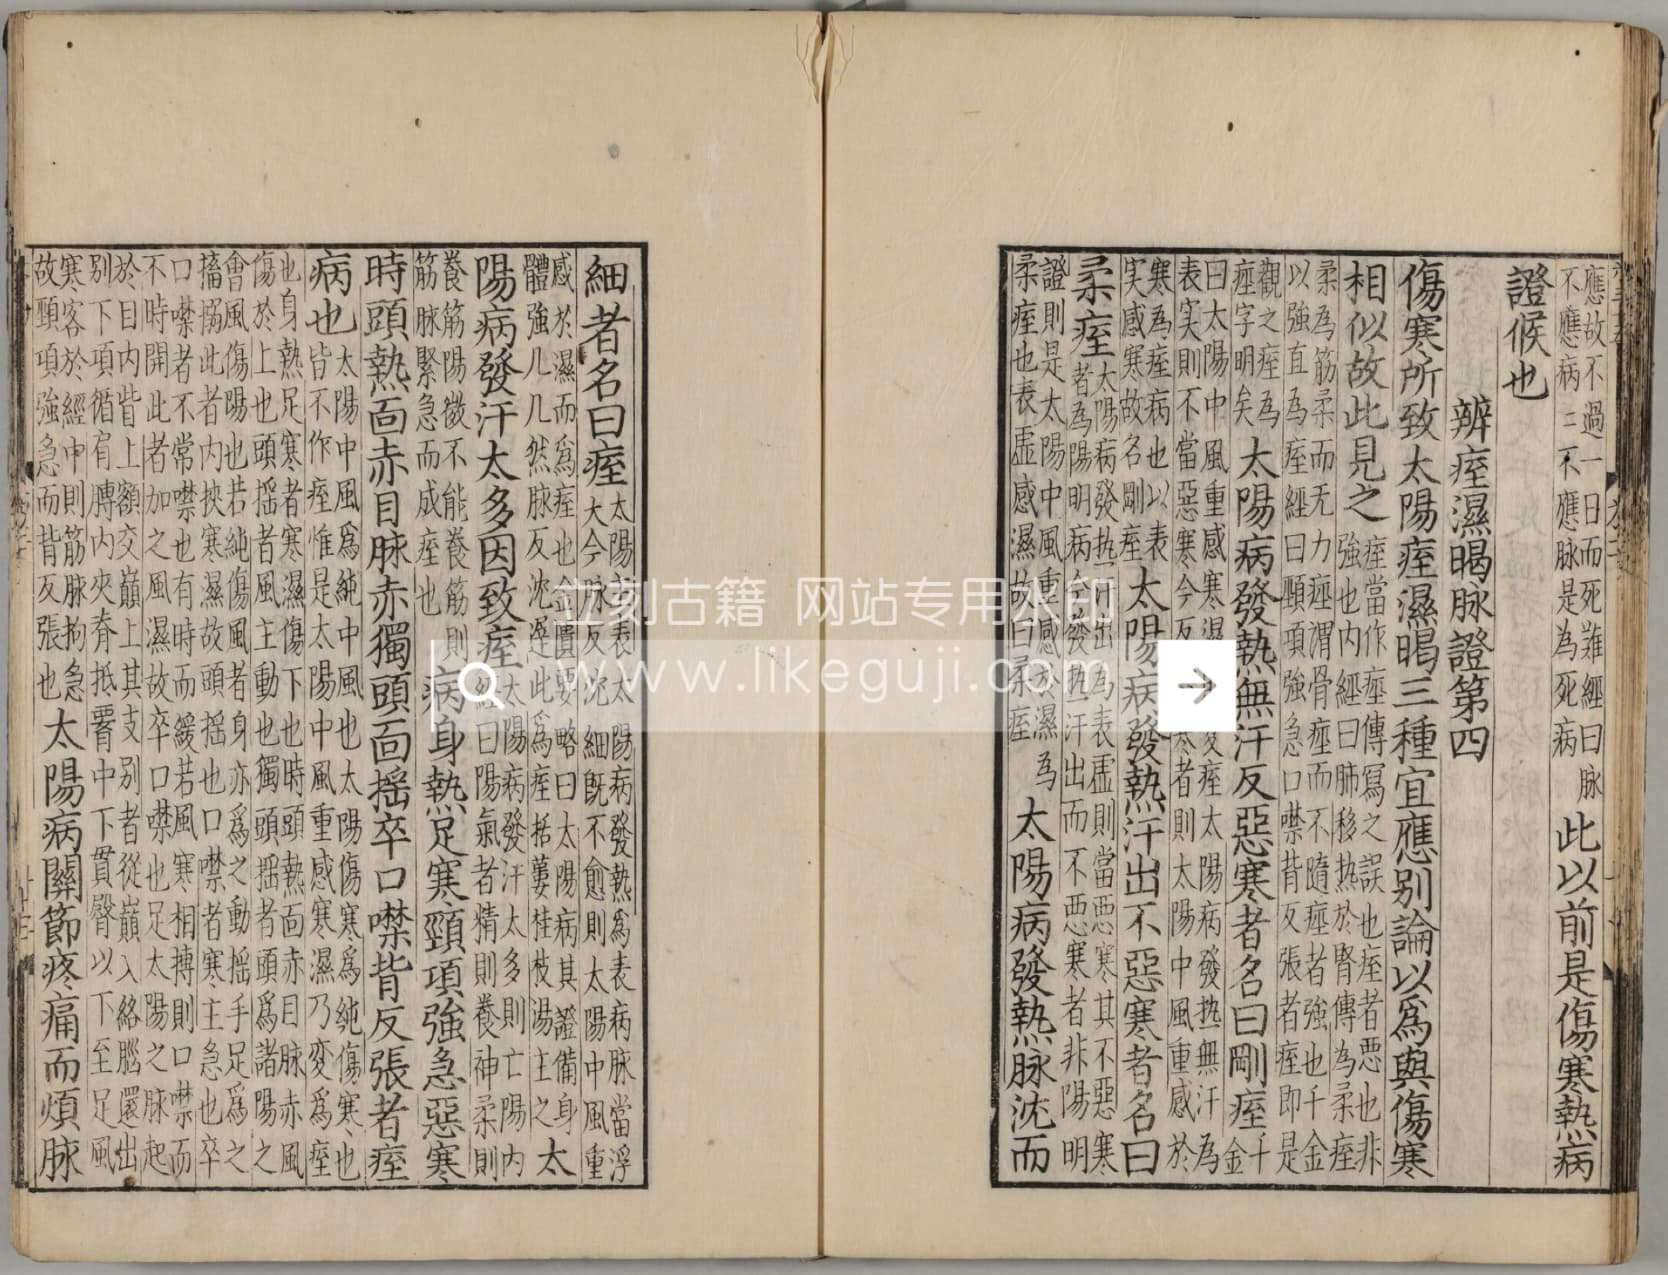 應故不過一日而死難經曰脉
不應病病不應脉是為死病
此以前是傷寒熱病
證候也
辨痓濕暍脉證第四
傷寒所致太陽痓濕暍三種宜應別論以爲與傷寒
相似故此見之
痓當作痙傳寫之誤也痓者惡也非
強也內經曰肺移热於腎傳為柔痓
柔為筋柔而无力痙謂骨痙而不隨痙者強也千金
以強直為痓經曰頸項強急口噤背反張者痓即是
觀之痓為
痙字明矣
太陽病發熱無汗反惡寒者名曰剛痓
千
金
曰太陽中風重感寒濕則變痓太陽病發热無汗為
表实則不當惡寒今反惡寒者則太陽中風重感於
寒為痓病也以表
实感寒故名剛痓
太陽病發熱汗出不惡寒者名曰
柔痓
太陽病發热汗出為表虛則當惡寒其不惡寒
者為陽明病今發热汗出而不惡寒者非陽明
證則是太陽中風重感於濕為
柔痓也表虛感濕故曰柔痓
太陽病發熱脉沈而
細者名曰痓
太陽主表太陽病發熱爲表病脉當浮
大今脉反沈細既不愈則太陽中風重
感於濕而爲痓也金匱要略曰太陽病其證備身
體強几几然脉反沈遲此爲痓括蔞桂枝湯主之
太
陽病發汗太多因致痓
太陽病發汗太多則亡陽內
經曰陽氣者精則養神柔則
養筋陽微不能養筋則
筋脉緊急而成痓也
病身熱足寒頸項強急惡寒
時頭熱面赤目脉赤獨頭面摇卒口噤背反張者痓
病也
太陽中風爲純中風也太陽傷寒爲純傷寒也
皆不作痓惟是太陽中風重感寒濕乃變爲痓
也身熱足寒者寒濕傷下也時頭熱面赤目脉赤風
傷於上也頭摇者風主動也獨頭摇者頭爲諸陽之
會風傷陽也若純傷風者身亦爲之動摇手足爲之
搐搦此者內挾寒濕故頭摇也口噤者寒主急也卒
口噤者不常噤也有時而緩若風寒相搏則口噤而
不時開此者加之風濕故卒口噤也足太陽之脉起
於目內眥上額交巔上其支別者從巔入絡腦還出
別下項循肩膊內夾脊抵腰中下貫臀以下至足風
寒客於經中則筋脉拘急
故頸項強急而背反張也
太陽病關節疼痛而煩脉
立刻古籍 网站专用水印
www.likeguji.com